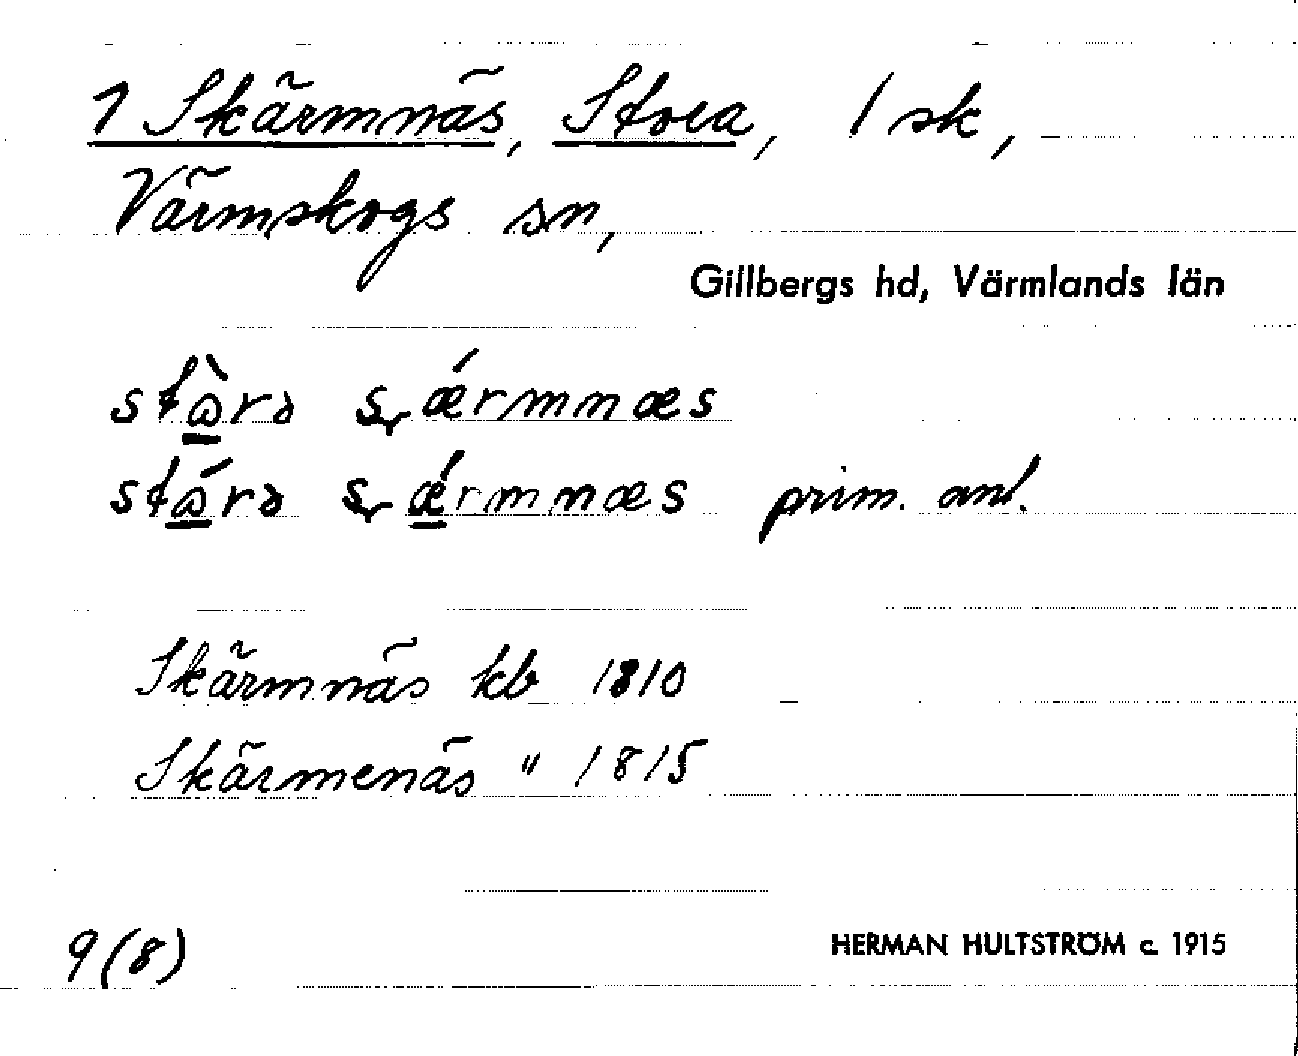 1 Skärmnäs, Stora, 1 sk,
Värmskogs sn,
Gillbergs hd, Värmlands län
prim. ant.
Skärmnäs kb 1810
Skärmenäs " 1815
9(8)
HERMAN HULTSTRÖM c. 1915